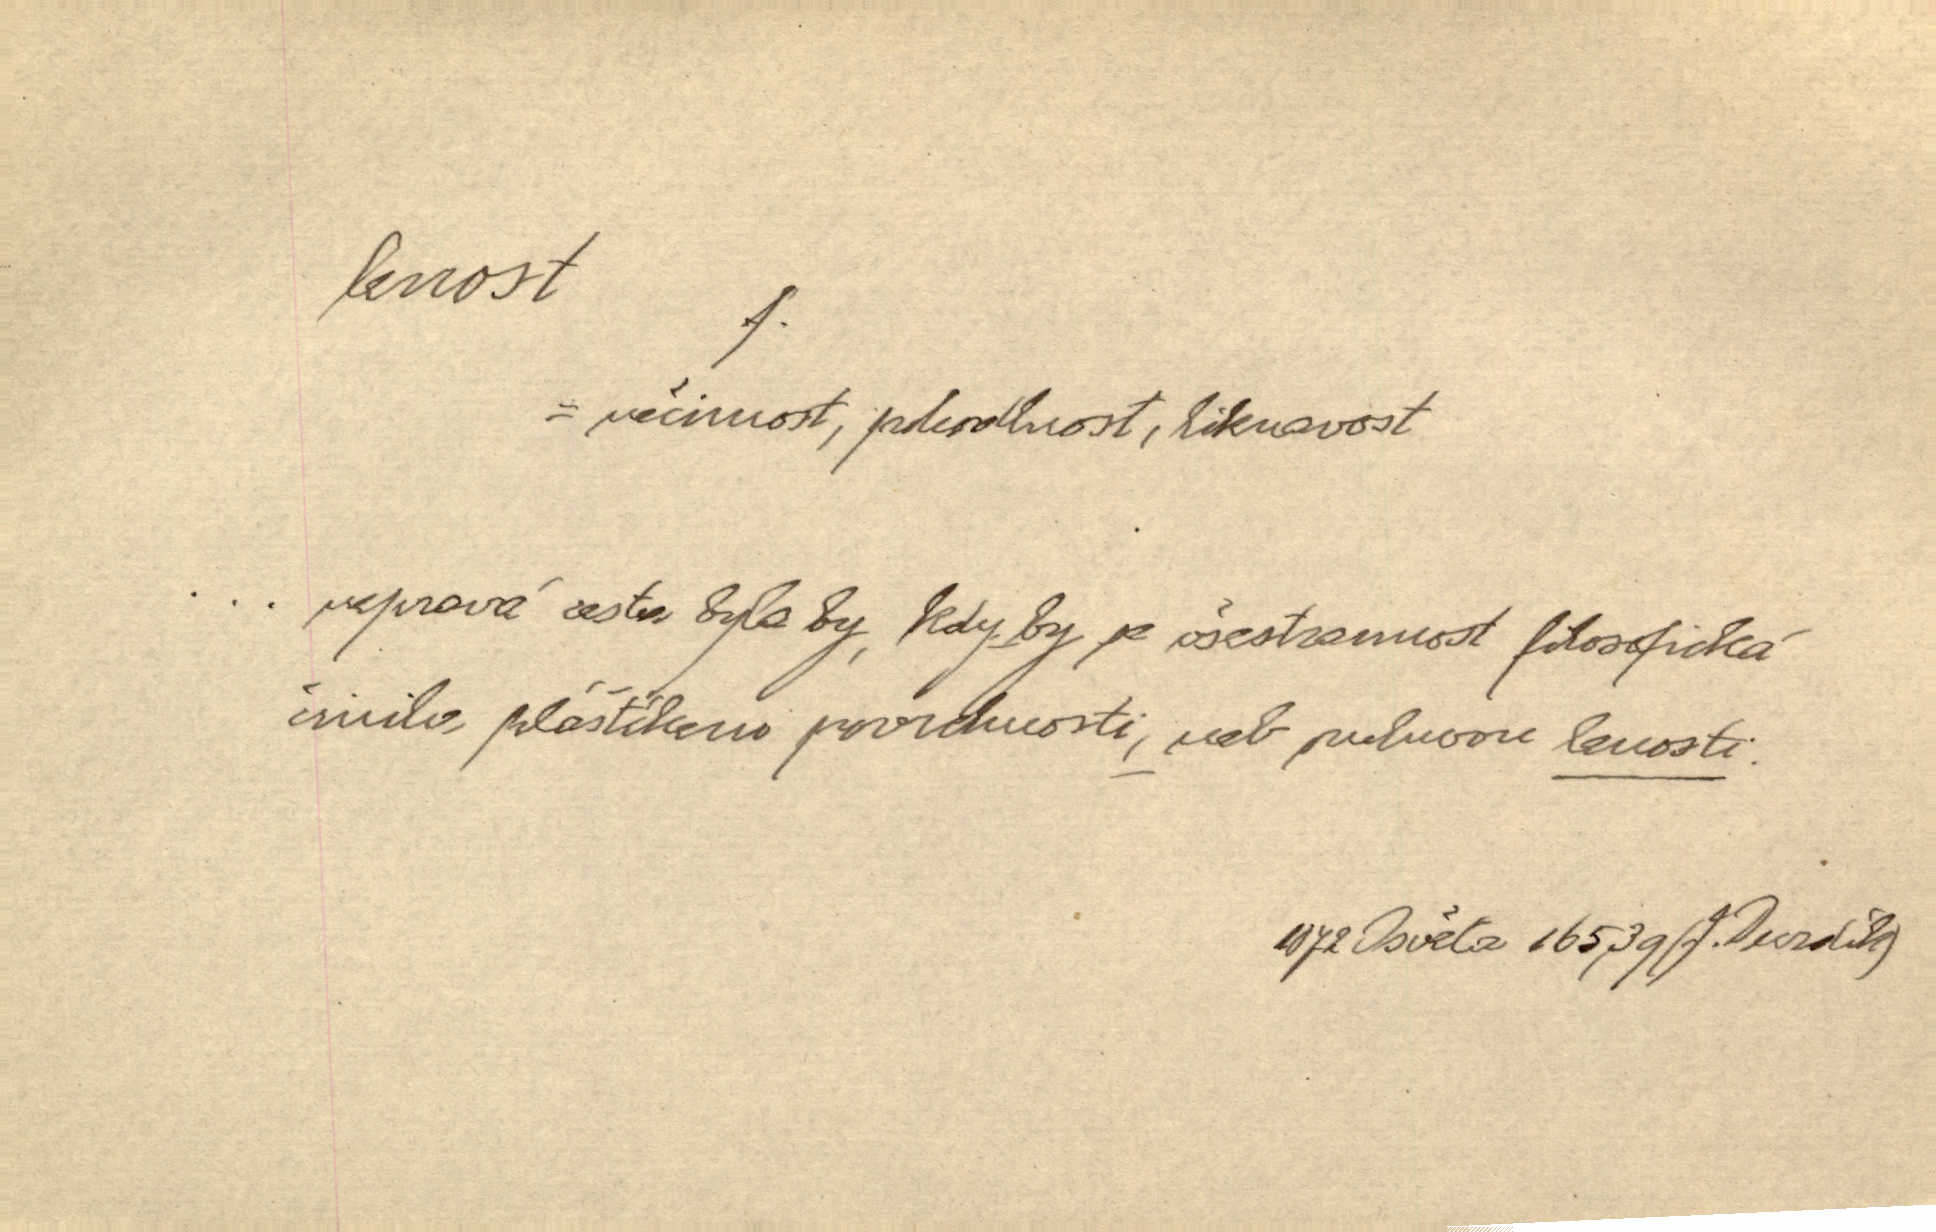 lenost
f.
= nečinnost, pohodlnost, liknavost
... nepravá cesta byla by, kdyby se všestrannost filosofická
činila pláštíkem povrchnosti, neb duchovní lenosti.
1872 Osvěta 165,39 (J. Durdík)